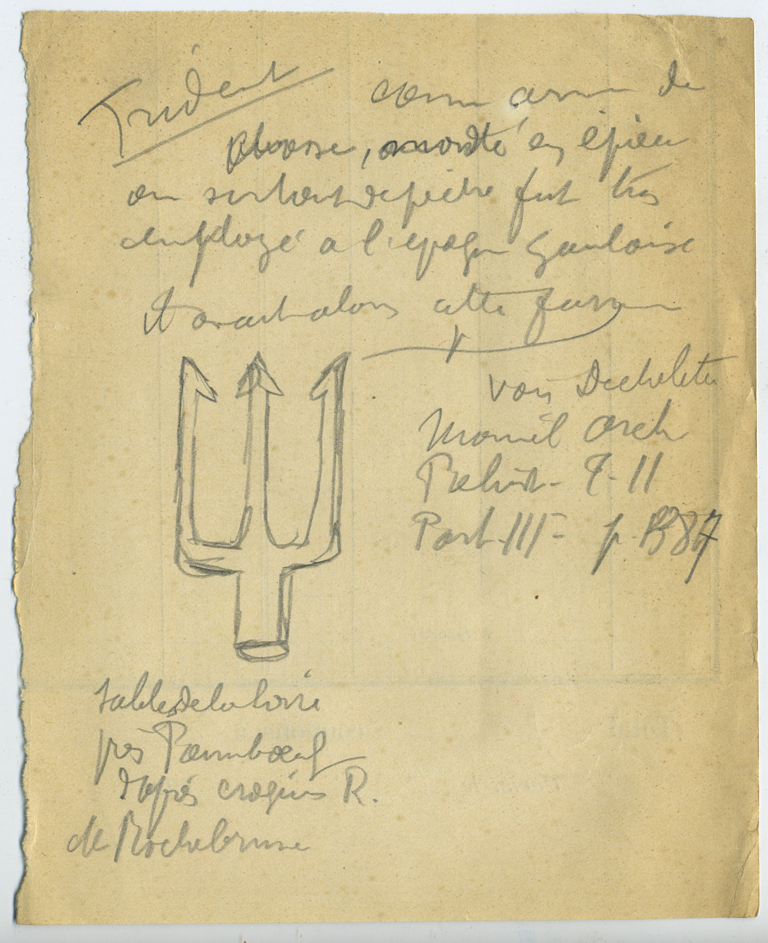 Trident comme arme de
chasse, monté en épieu
ou surtout de pêche fut très
employé a l'epoque Gauloise
Il avait alors cette forme
voir Dechelette
Manuel Arch
Prehist - T - II
Part. III - p.
Sables de la Loire
près Paimboeuf
d'après croquis R.
de Rochebrune